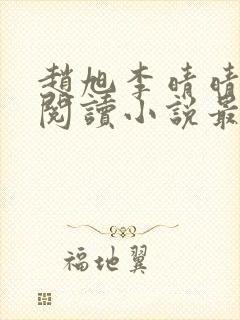 趙旭李晴晴
閱讀小說最
福地翼